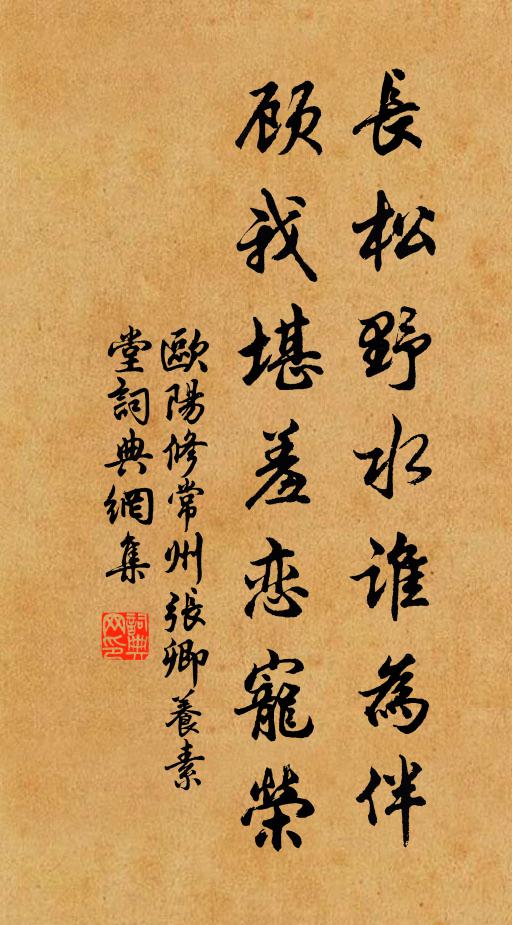 長松野水誰為伴
顧我堪羞恋寵榮
歐陽修常州張卿養素
堂詞典網集
詞典
网印